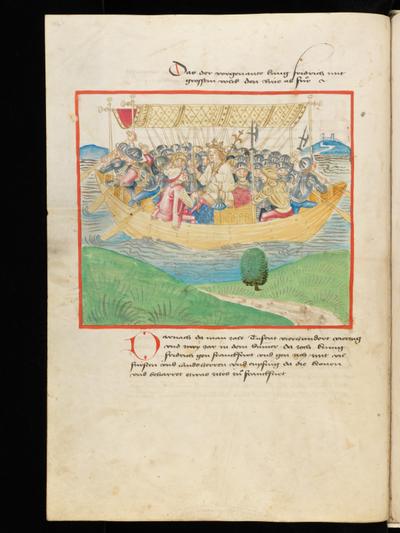 Das der vorgenante kung fridrich mit
grossem volck den Rin ab für
Darnach do man zalt Tusent vierhundert viertzig
und zwey jar in dem Summer da zoch kunig
fridrich gen franckfurt und gen ach mit vil
fürsten und Landsherren und enpfing da die kronen
und beharret etwas zites zu franckfurt